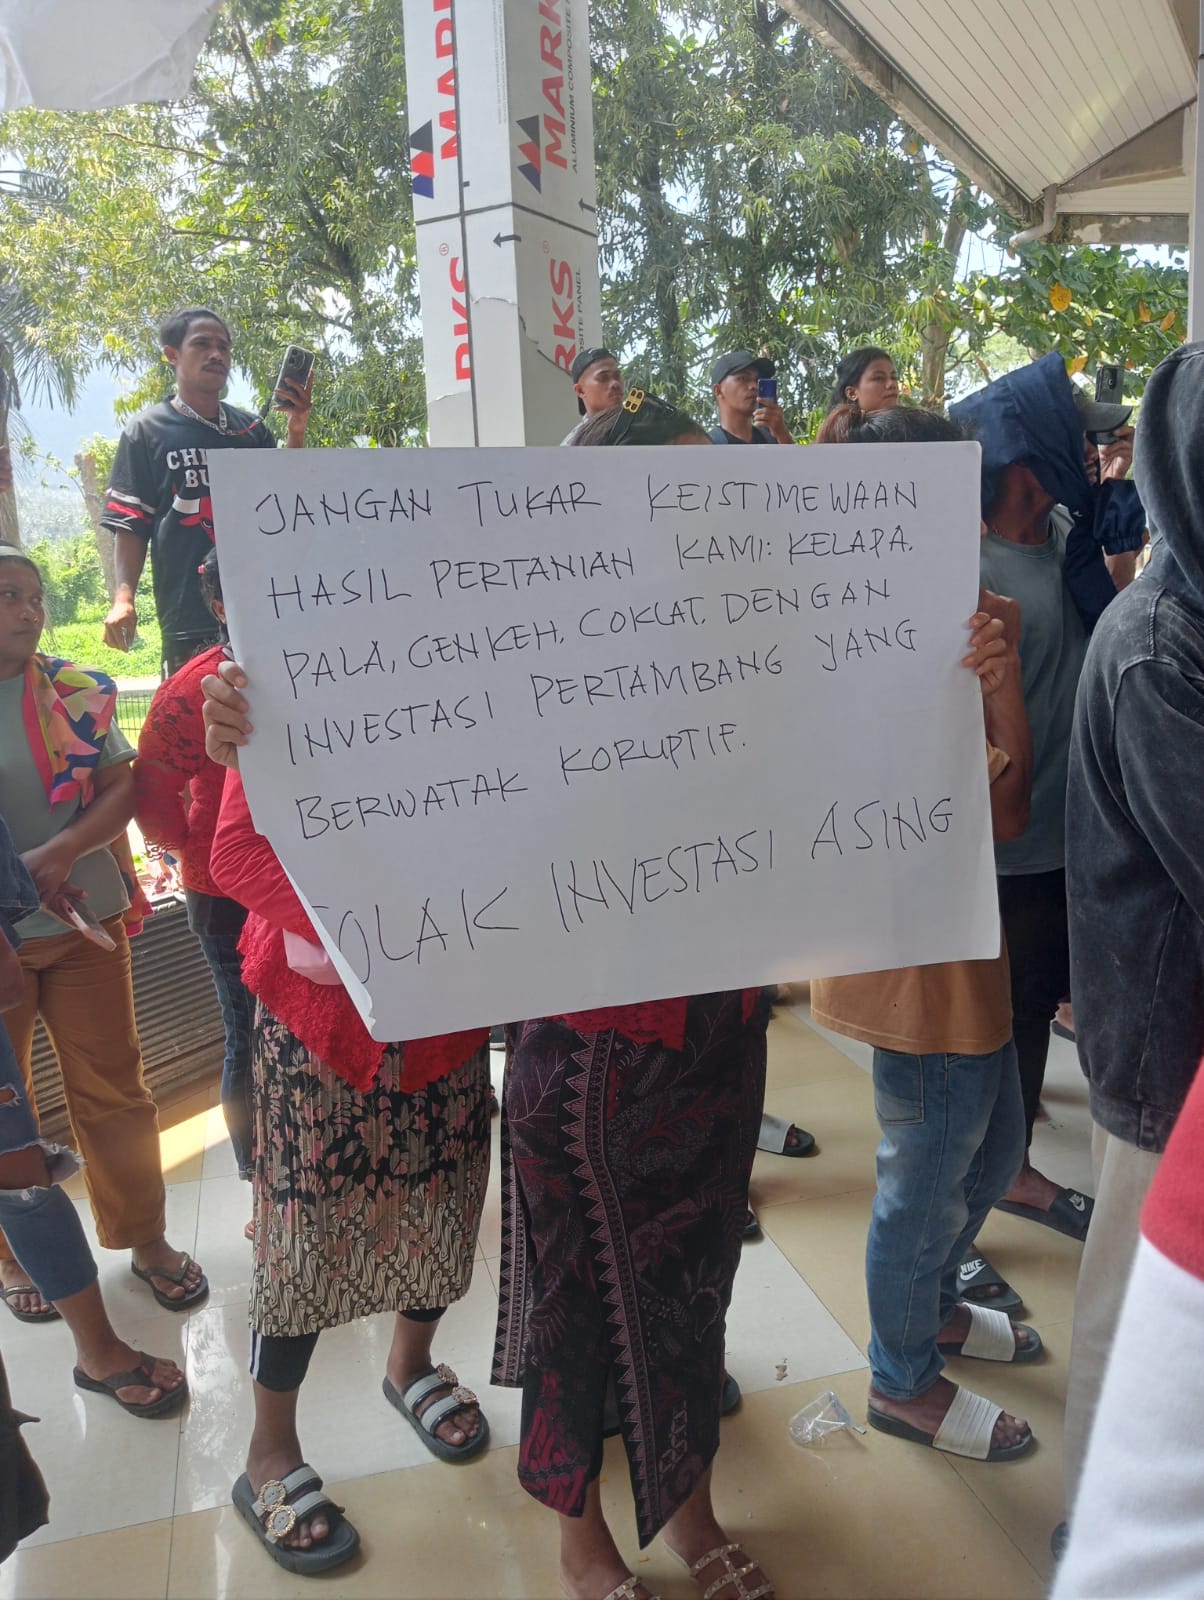 MARKS
ALUMINIUM COMPOSITE PANEL
CHI
BU
JANGAN TUKAR KEISTIMEWAAN
HASIL PERTANIAN KAMI: KELAPA.
PALA, CENKEH, COKLAT, DENGAN
INVESTASI PERTAMBANG YANG
BERWATAK KORUPTIF.
TOLAK INVESTASI ASING
NIKE